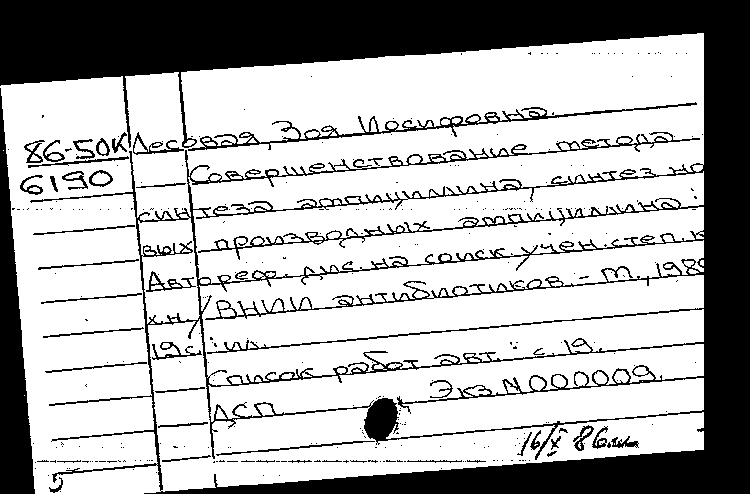 86-50К Лесовая, Зоя Иосифовна.
6190 Совершенствование метода
синтеза ампициллина, синтез но
вых производных ампициллина:
Автореф. дис. на соиск. учен. степ. к
х.н. / ВНИИ антибиотиков. - М., 198
19 с.: ил.
Список работ авт.: с. 19.
ДСП Экз. N 000009.
16/X 86
5